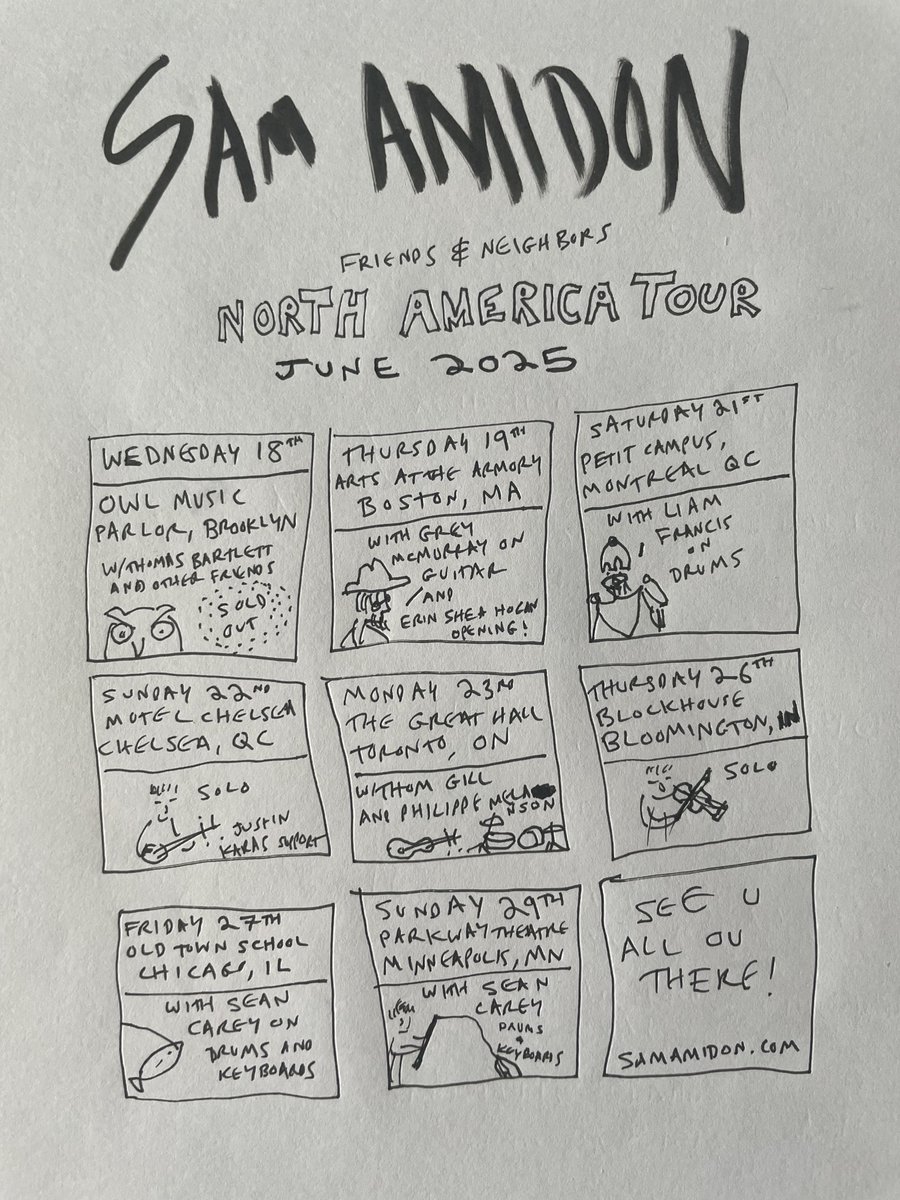 SAM AMIDON
FRIENDS & NEIGHBORS
NORTH AMERICA TOUR
JUNE 2025
WEDNESDAY 18TH
OWL MUSIC
PARLOR, BROOKLYN
W/THOMAS BARTLETT
AND OTHER FRIENDS
SOLD
OUT
THURSDAY 19TH
ARTS AT THE ARMORY
BOSTON, MA
WITH GREY
MCMURRAY ON
GUITAR
AND
ERIN SHEA HOGAN
OPENING!
SATURDAY 21ST
PETIT CAMPUS,
MONTREAL QC
WITH LIAM
FRANCIS
ON
DRUMS
SUNDAY 22ND
MOTEL CHELSEA
CHELSEA, QC
SOLO
JUSTIN
KARAS SUPPORT
MONDAY 23RD
THE GREAT HALL
TORONTO, ON
W/THOM GILL
AND PHILIPPE MELANSON
THURSDAY 26TH
BLOCKHOUSE
BLOOMINGTON, IN
SOLO
FRIDAY 27TH
OLD TOWN SCHOOL
CHICAGO, IL
WITH SEAN
CAREY ON
DRUMS AND
KEYBOARDS
SUNDAY 29TH
PARKWAY THEATRE
MINNEAPOLIS, MN
WITH SEAN
CAREY
DRUMS
+
KEYBOARDS
SEE U
ALL OU
THERE!
SAMAMIDON.COM